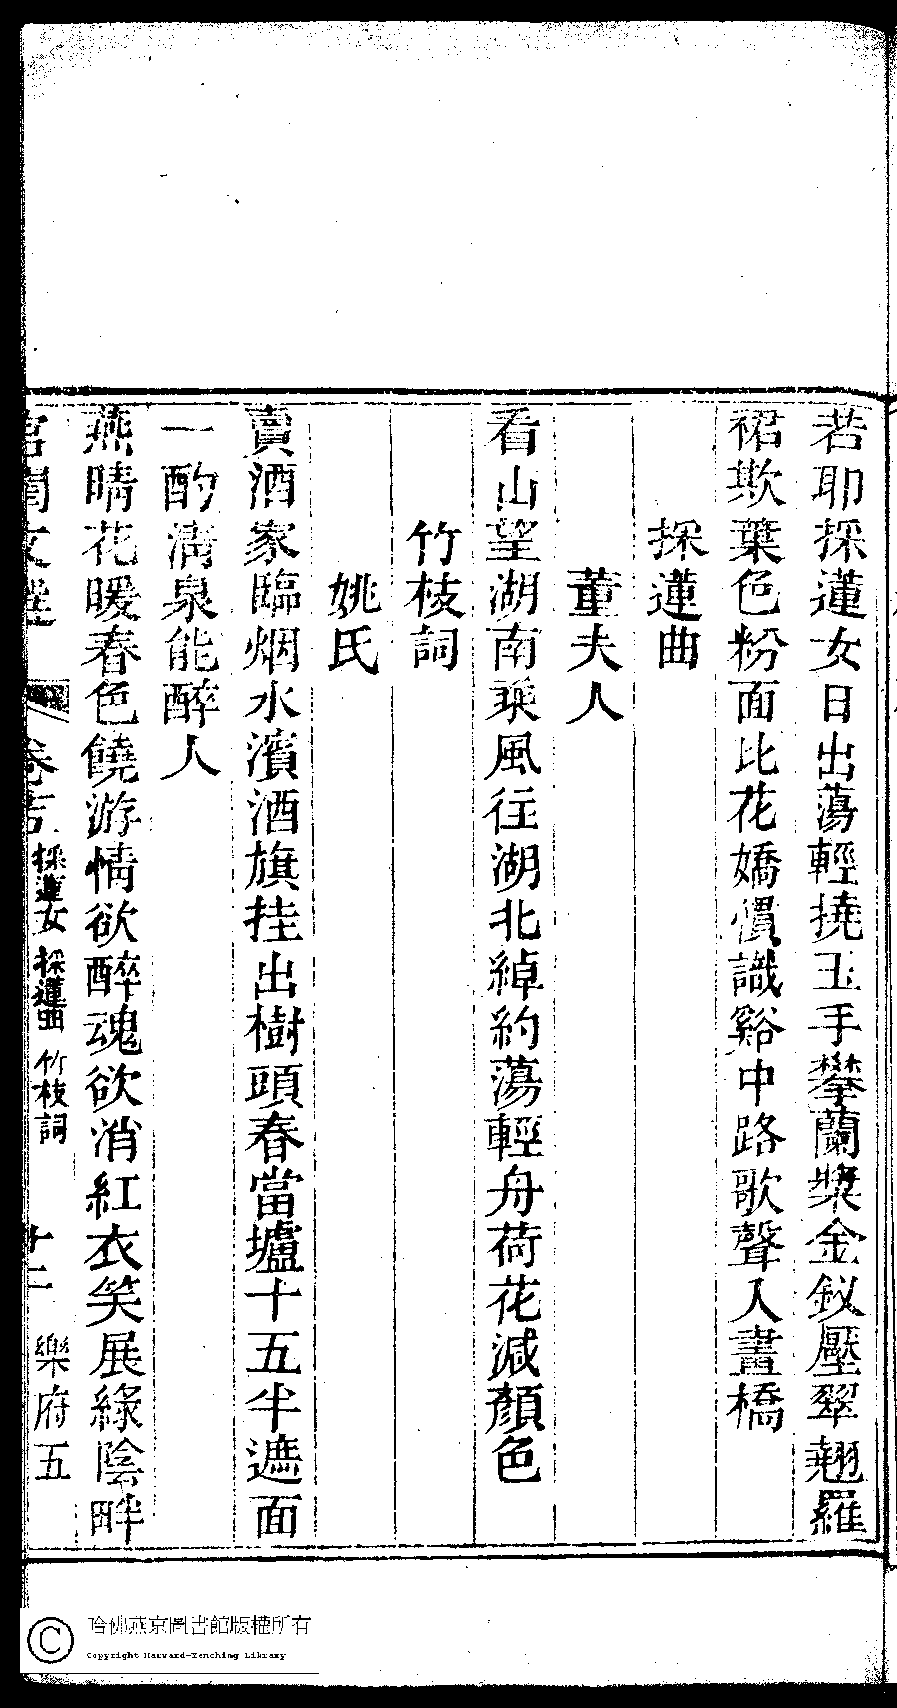 若耶採蓮女日出蕩輕撓玉手攀蘭槳金釵壓翠翹羅
裙欺葉色粉面比花嬌慣識谿中路歌聲入畫橋
採蓮曲
董夫人
看山望湖南乘風往湖北綽約蕩輕舟荷花減顏色
竹枝詞
姚氏
賣酒家臨烟水濱酒旗挂出樹頭春當壚十五半遮面
一酌淸泉能醉人
燕晴花暖春色饒游情欲醉魂欲消紅衣笑展綠陰畔
宮閨文選 卷 採蓮女 採蓮曲 竹枝詞 十二 樂府五
哈佛燕京圖書館版權所有
Copyright Harvard-Yenching Library